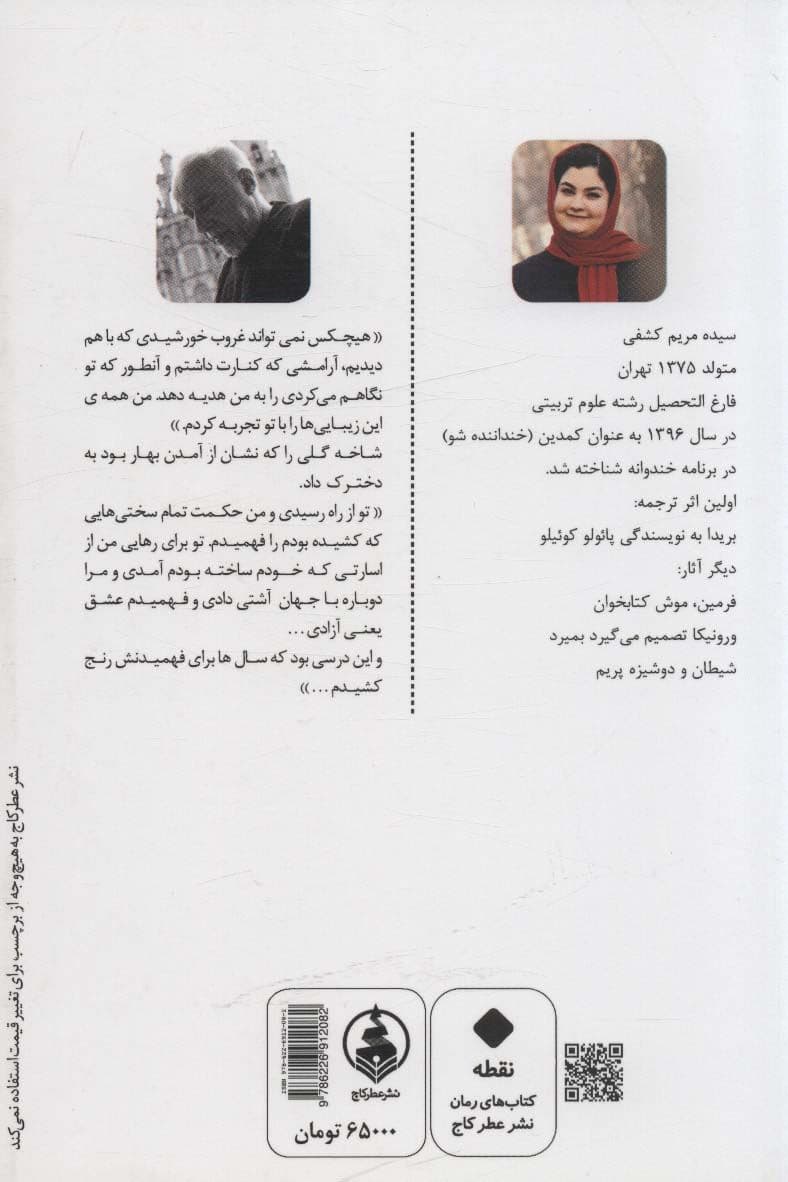 سیده مریم کشفی
متولد ۱۳۷۵ تهران
فارغ التحصیل رشته علوم تربیتی
در سال ۱۳۹۶ به عنوان کمدین (خنداننده شو)
در برنامه خندوانه شناخته شد.
اولین اثر ترجمه:
بریدا به نویسندگی پائولو کوئیلو
دیگر آثار:
فرمین، موش کتابخوان
ورونیکا تصمیم می‌گیرد بمیرد
شیطان و دوشیزه پریم
«هیچکس نمی تواند غروب خورشیدی که با هم
دیدیم، آرامشی که کنارت داشتم و آنطور که تو
نگاهم می‌کردی را به من هدیه دهد. من همه ی
این زیبایی‌ها را با تو تجربه کردم.»
شاخه گلی را که نشان از آمدن بهار بود به
دخترک داد.
«تو از راه رسیدی و من حکمت تمام سختی‌هایی
که کشیده بودم را فهمیدم. تو برای رهایی من از
اسارتی که خودم ساخته بودم آمدی و مرا
دوباره با جهان آشتی دادی و فهمیدم عشق
یعنی آزادی...
و این درسی بود که سال ها برای فهمیدنش رنج
کشیدم...»
نشر عطر کاج به هیچ وجه از برچسب برای تغییر قیمت استفاده نمی‌کند
نقطه
کتاب‌های رمان
نشر عطر کاج
نشر عطر کاج
ISBN 978-622-6912-08-2
9 786226 912082
۶۵۰۰۰ تومان